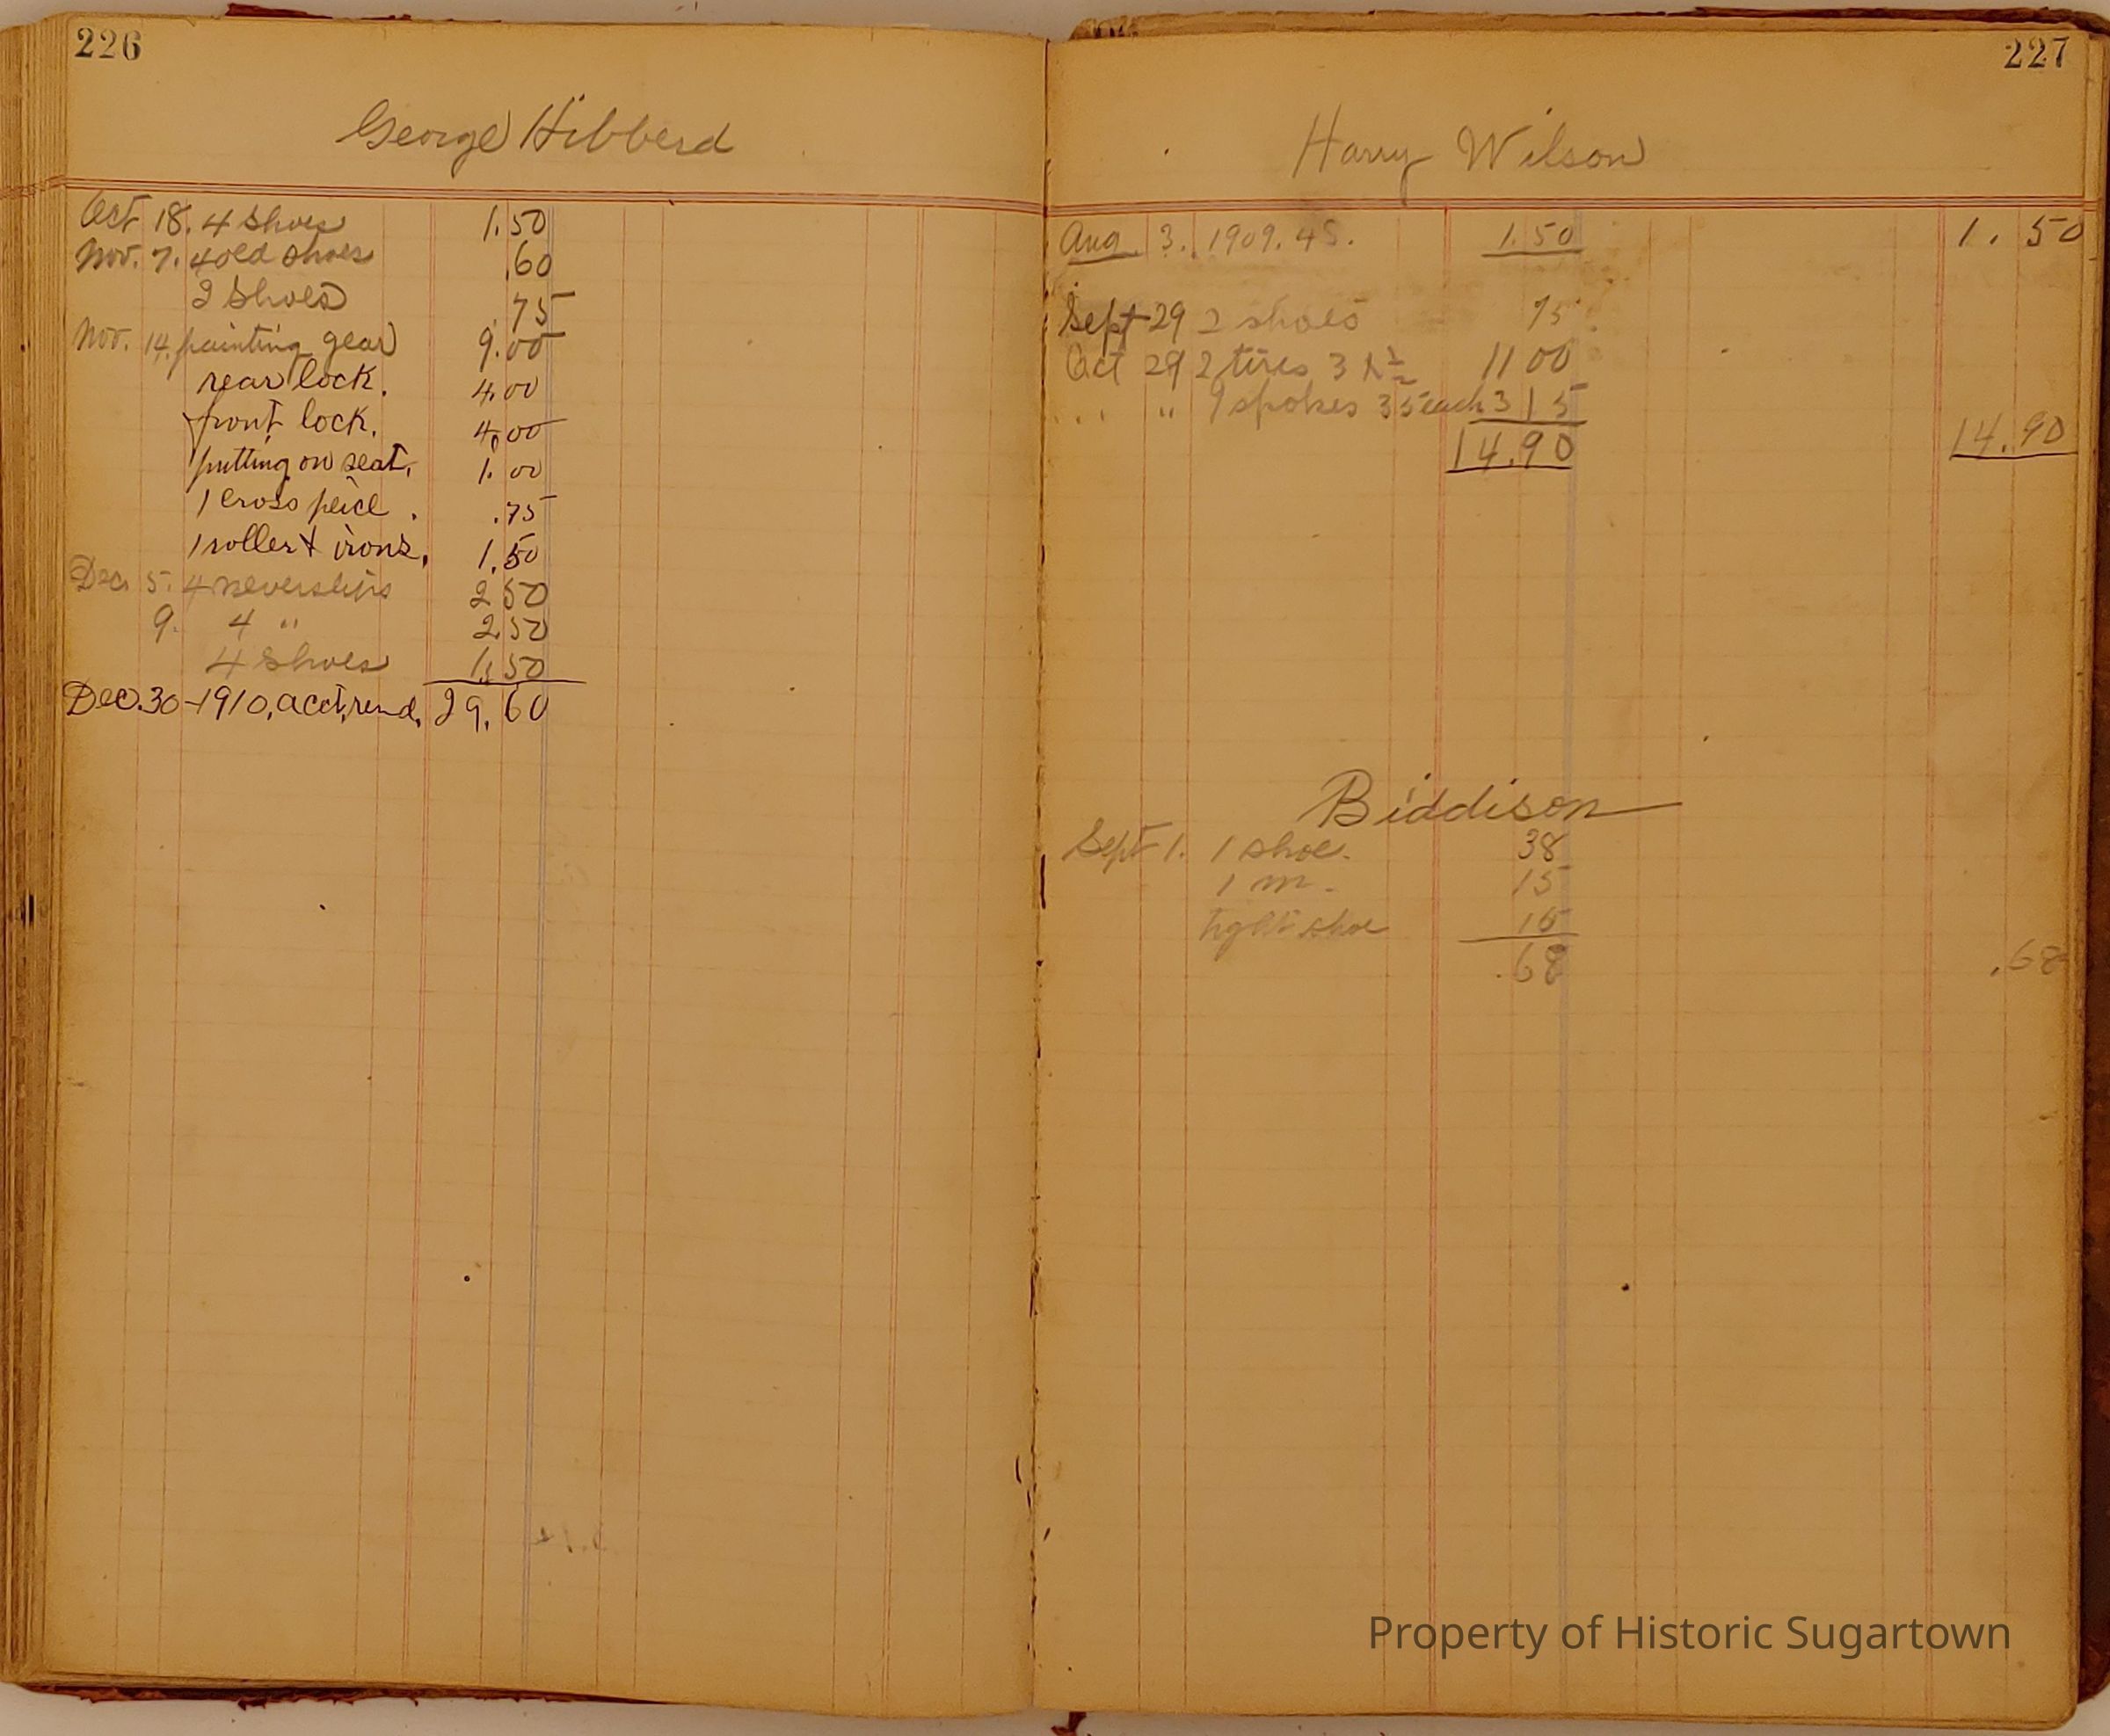 226
George Hibberd
Oct 18. 4 shoes 1.50
Nov. 7. 4 old shoes .60
2 shoes .75
Nov. 14. painting gear 9.00
rear lock. 4.00
front lock. 4.00
putting on seat. 1.00
1 cross peice . .75
1 roller & irons. 1.50
Dec. 5. 4 neverslips 2 50
9. 4 " 2.50
4 shoes 1.50
Dec. 30 - 1910, acct, rend. 29.60
227
Harry Wilson
Aug 3. 1909. 4 S. 1.50 1.50
Sept 29 2 shoes 75
Oct 29 2 tires 11 00
" " 9 spokes 35 each 3 15
14.90 14.90
Biddison
Sept 1. 1 shoe. 38
1 m. 15
tight shoe 15
.68 .68
Property of Historic Sugartown